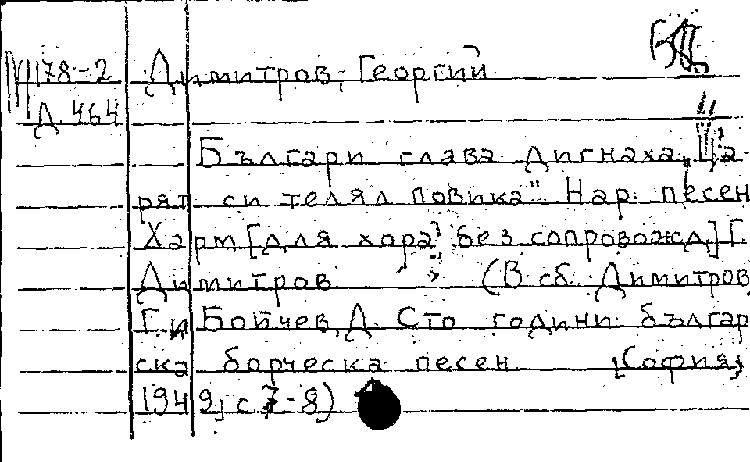 178-2 Димитров, Георгий
Д.464
Българи слава дигнаха. „Ца-
рят си телял повика". Нар. песен
Харм. [для хора без сопровожд.] Г.
Димитров (В сб. Димитров
Г. и Бойчев, Д. Сто години българ
ска борческа песен [София,
1949, с 7-8)